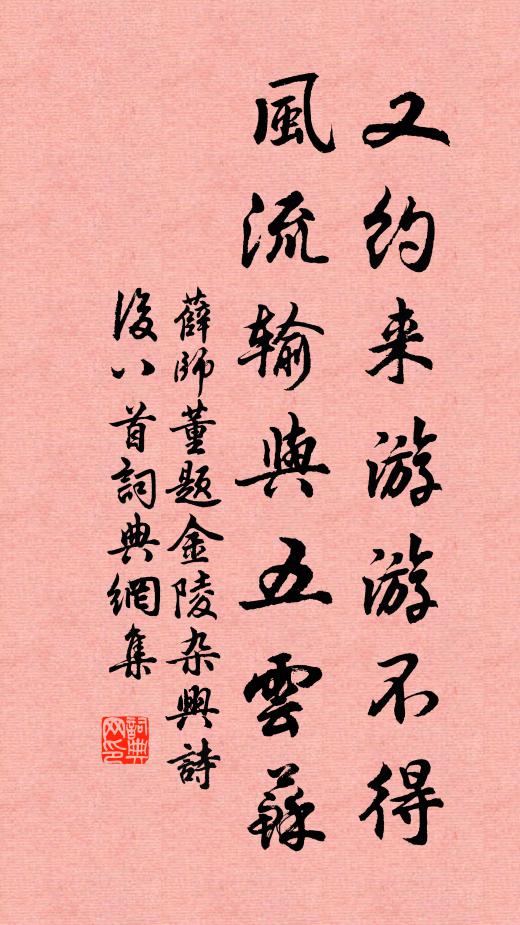 又约来游游不得
風流输與五雲蘇
薛師董题金陵杂興詩
後八首詞典網集
詞典
网印